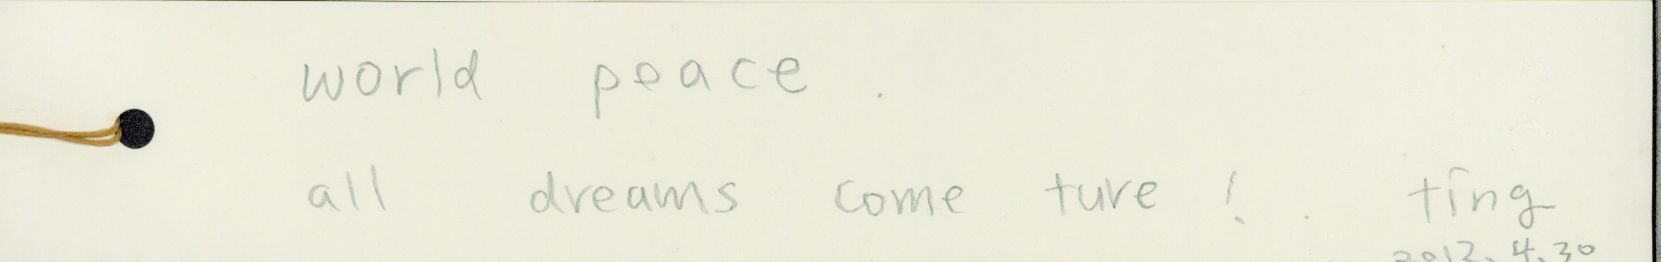 world peace.
all dreams come ture! ting
2012.4.30